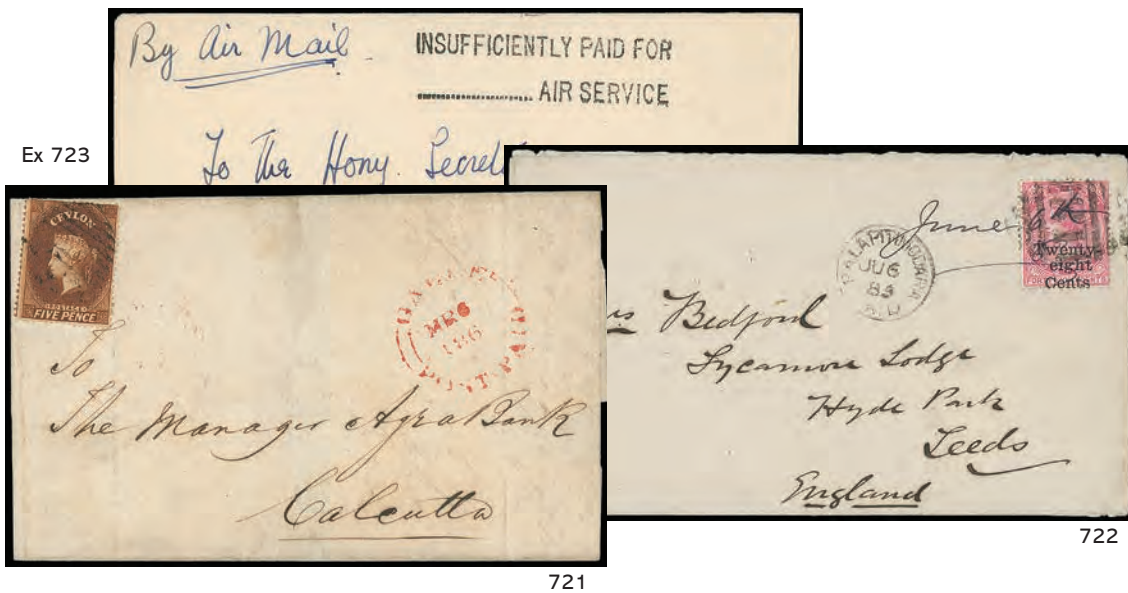 By Air Mail
INSUFFICIENTLY PAID FOR
AIR SERVICE
Ex 723
To The Hony.
CEYLON
FIVE PENCE
MR 6
186
POST PAID
To
The Manager Agra Bank
Calcutta
721
June 6
JU 6
Twenty-
eight
Cents
Bedford
Sycamore Lodge
Hyde Park
Leeds
England
722